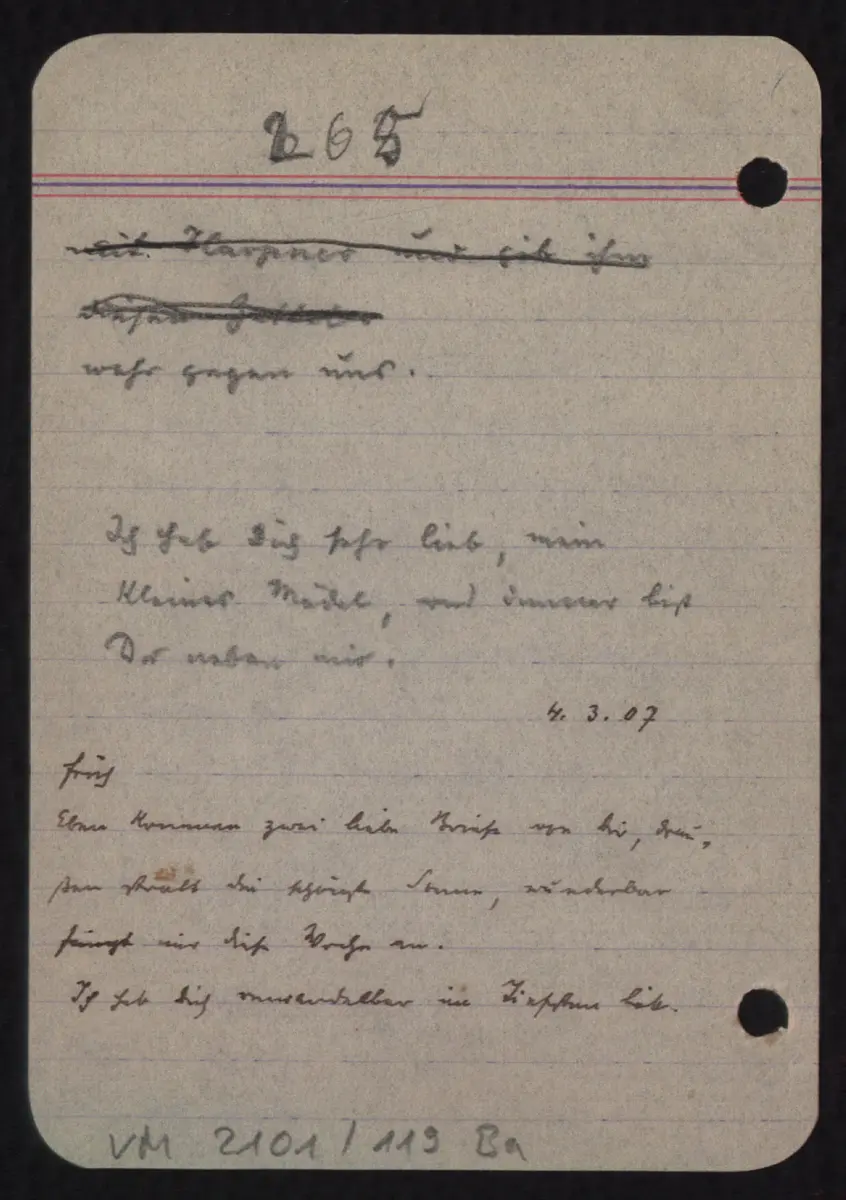 265
mehr gegen uns.
Ich hab Dich sehr lieb, mein
kleines Mädel, und immer bist
Du neben mir.
4. 3. 07
früh
Eben kommen zwei liebe Briefe von Dir, drau-
ßen strahlt die schönste Sonne, wunderbar
fängt mir diese Woche an.
Ich hab Dich unwandelbar im Tiefsten lieb.
VM 2101/119 Ba